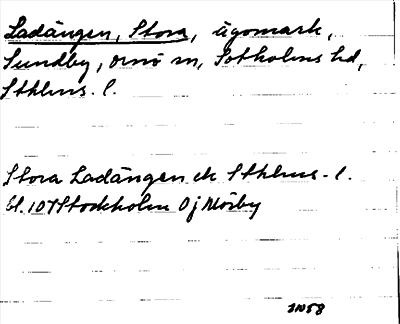 Ladängen, Stora, ägomark,
Sundby, Ornö sn, Sotholms hd,
Sthlms. l.
Stora Ladängen ek Sthlms. l.
bl. 107 Stockholm Oj Mörby
IN58